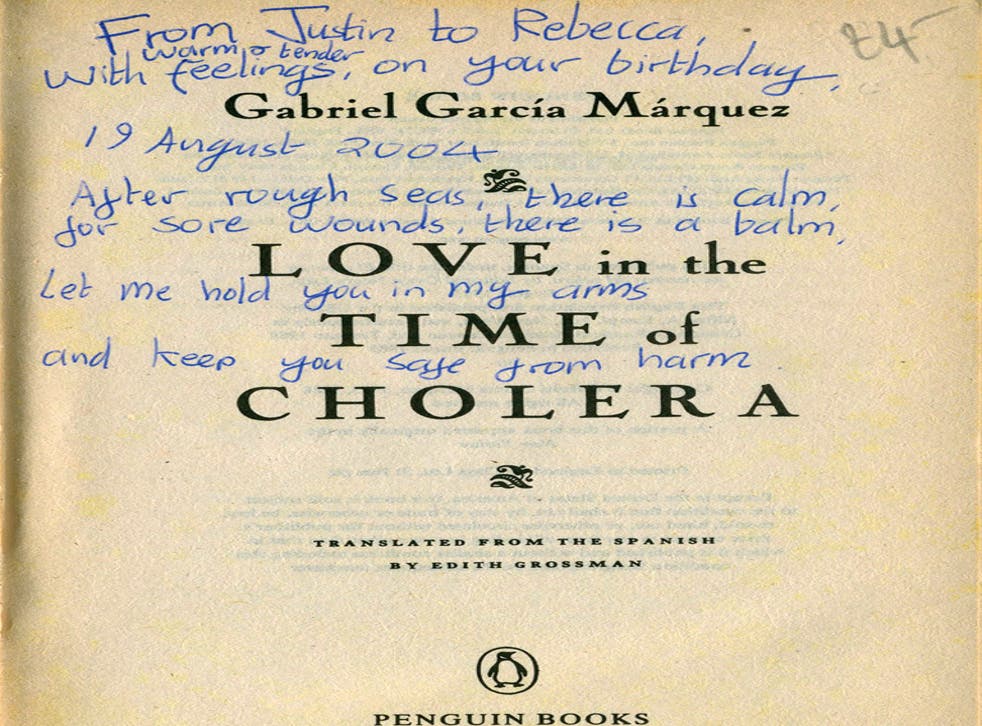 From Justin to Rebecca,
warm & tender
With feelings, on your birthday,
£4
Gabriel García Márquez
19 August 2004
After rough seas, there is calm,
for sore wounds, there is a balm,
LOVE in the
Let me hold you in my arms
TIME of
and keep you safe from harm.
CHOLERA
TRANSLATED FROM THE SPANISH
BY EDITH GROSSMAN
PENGUIN BOOKS